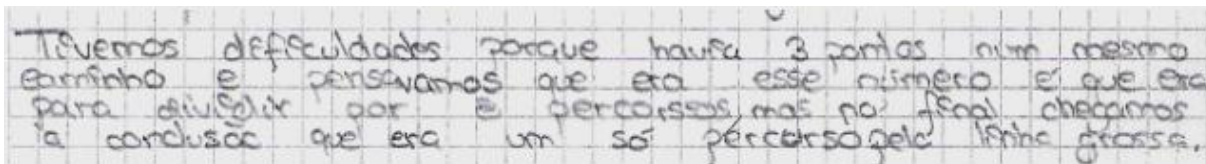 Tivemos dificuldades porque havia 3 pontos num mesmo
caminho e pensavamos que era esse número e que era
para dividir por e percorssos, mas no final chegamos
à conclusão que era um só percurso pela linha grossa.